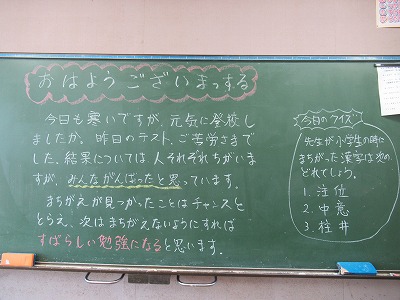 おはようございまっする
今日も寒いですが、元気に登校し
ましたか。昨日のテスト、ご苦労さまで
した。結果については人それぞれちがいま
すが、みんながんばったと思っています。
まちがえが見つかったことはチャンスと
とらえ、次はまちがえないようにすれば
すばらしい勉強になると思います。
今日のクイズ
先生が小学生の時に
まちがった漢字は次の
どれでしょう。
1. 注位
2. 中意
3. 柱井